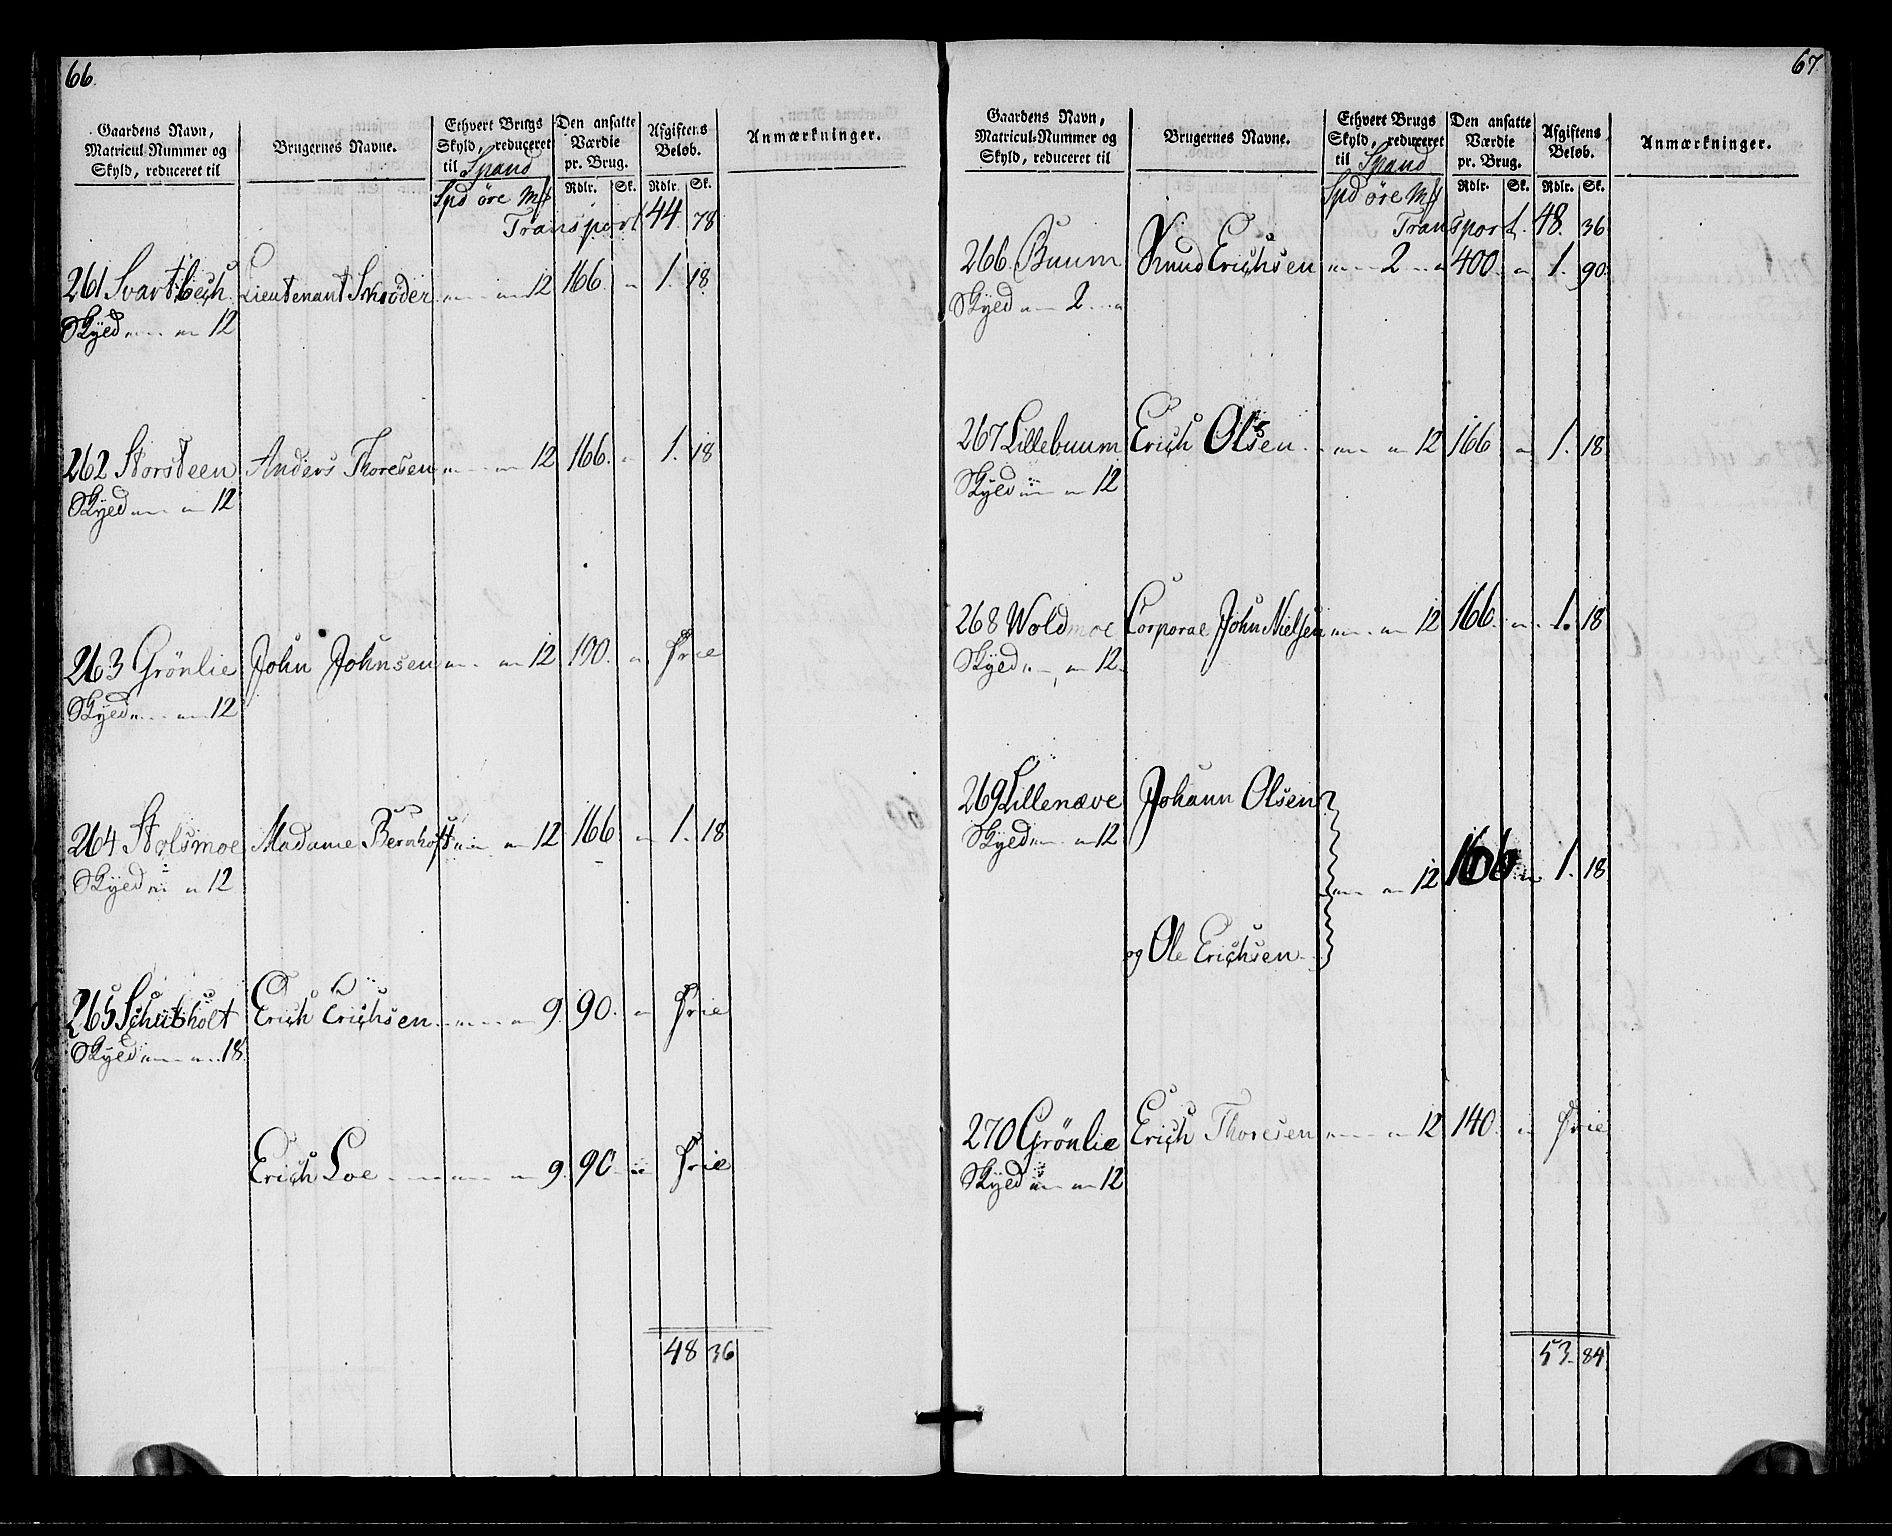 66.
Gaardens Navn,
Matricul-Nummer og
Skyld, reduceret til
Brugernes Navne.
Ethvert Brugs
Skyld, reduceret
til Spand
Den ansatte
Værdie
pr. Brug.
Afgiftens
Beløb.
Anmærkninger.
Rdlr. Sk. Rdlr. Sk.
Spd öre
Transport 44. 78
261 Svartbech Lieutenant 12 166. " 1. 18
Skyld " " 12
262 Storsteen Anders Thoresen " " 12 166. " 1. 18
Skyld " " 12
263 Grönlie John Johnsen " " 12 " Frie
Skyld " " 12
264 Stolsmoe Madame Bernhoft " " 12 166. " 1. 18
Skyld " " 12
265 Erich Erichsen " " 9. 90. " Frie
Skyld " " 18.
Erich Loe " " 9. 90 " Frie
48 36
67
Gaardens Navn,
Matricul-Nummer og
Skyld, reduceret til
Brugernes Navne.
Ethvert Brugs
Skyld, reduceret
til Spand
Den ansatte
Værdie
pr. Brug.
Afgiftens
Beløb.
Anmærkninger.
Rdlr. Sk. Rdlr. Sk.
Spd öre
Transport. 48. 36
266. Buum Knud Erichsen " 2 " 400. " 1. 90
Skyld " 2 "
267 Lillebuum Erich Olsen " " 12 166 " 1. 18
Skyld " " 12
268 Woldmoe Corporal John Nielsen " " 12 166. " 1. 18
Skyld " " 12.
269 Lillenæve Johann Olsen
Skyld " " 12
" " 12 166 " 1. 18
og Ole Erichsen
270 Grönlie Erich Thoresen " " 12 140. " Frie
Skyld " " 12
53. 84